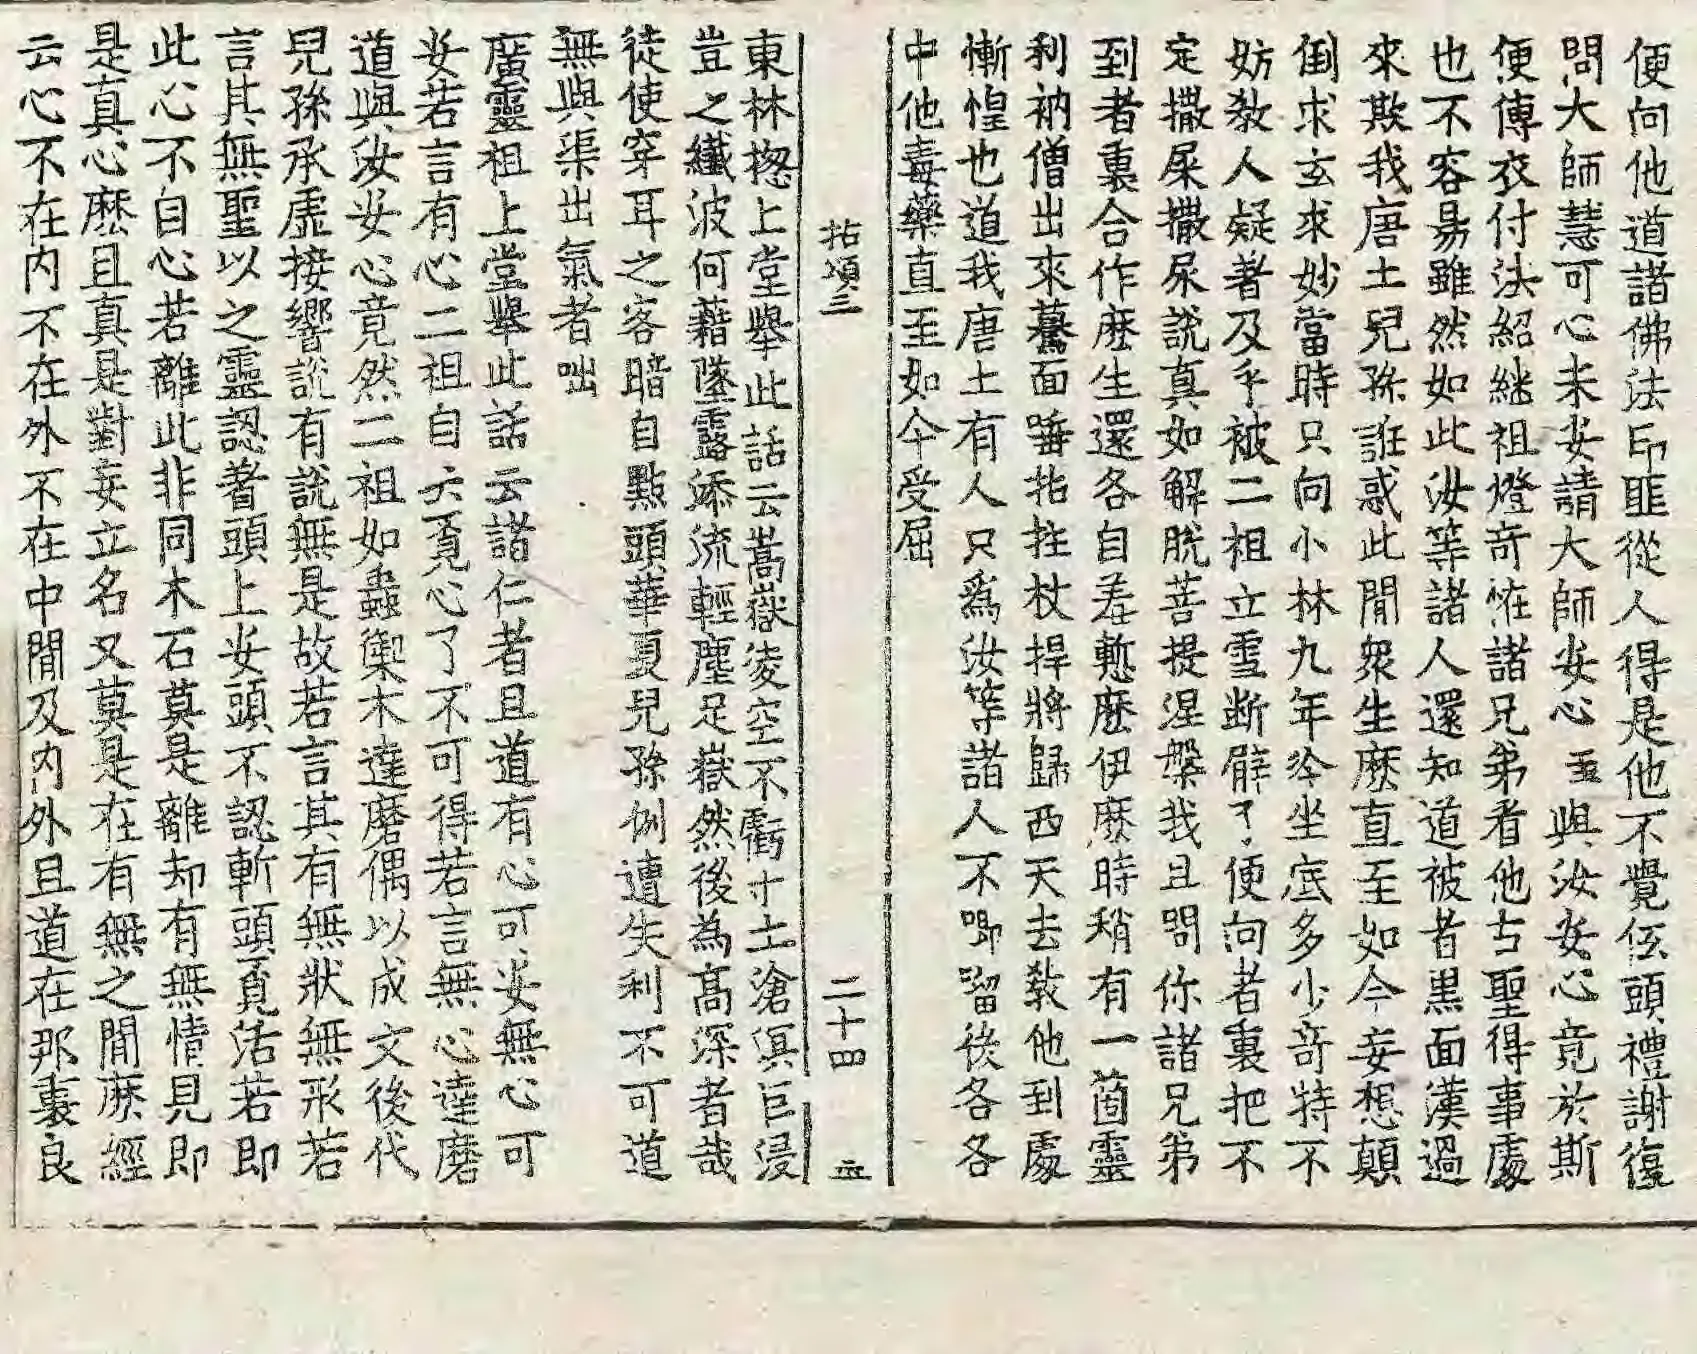 便向他道諸佛法印匪從人得是他不覺伍頭禮謝復
問大師慧可心未安請大師安心 至 與汝安心竟於斯
便傳衣付法紹継祖燈奇恠諸兄弟看他古聖得事處
也不容易雖然如此汝等諸人還知道被者黑面漢過
來欺我唐土兒孫誑惑此間衆生麽直至如今妄想顛
倒求玄求妙當時只向小林九年冷坐底多少奇特不
妨敎人疑著及乎被二祖立雪斷臂了便向者裏把不
定撒屎撒尿說真如解脫菩提涅槃我且問你諸兄弟
到者裏合作麽生還各自羞慙麽伊麽時稍有一箇靈
利衲僧出來驀面唾拈拄杖捍將歸西天去敎他到處
慚惶也道我唐土有人只爲汝等諸人不唧𠺕後各各
中他毒藥直至如今受屈
拈頌三 二十四
東林揔上堂擧此話云嵩嶽凌空不虧寸土滄溟巨浸
豈之纖波何藉墜露添流輕塵足嶽然後為高深者哉
徒使穿耳之客暗自點頭華夏兒孫例遭失利不可道
無與渠出氣者咄
廣靈祖上堂擧此話云諸仁者且道有心可安無心可
安若言有心二祖自云覓心了不可得若言無心達磨
道與汝安心竟然二祖如蟲禦木達磨偶以成文後代
兒孫承虛接響說有說無是故若言其有無狀無形若
言其無聖以之靈認著頭上安頭不認斬頭覓活若即
此心不自心若離此非同木石莫是離却有無情見即
是真心麽且真是對妄立名又莫是在有無之間麽經
云心不在内不在外不在中間及内外且道在那裏良